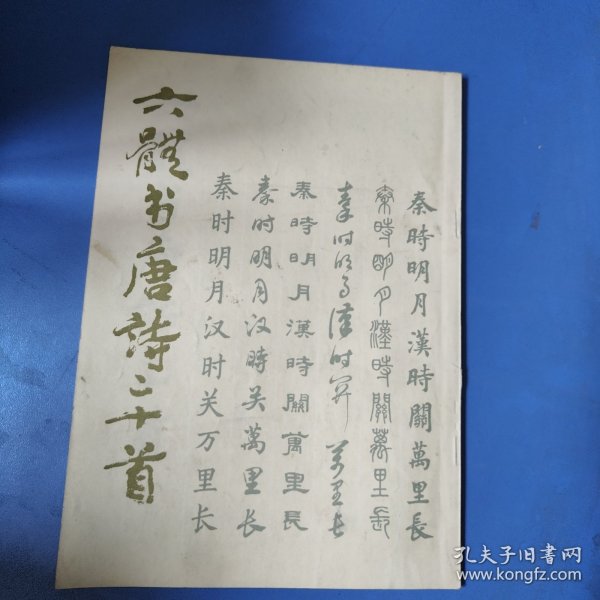 六體书唐詩二十首
秦時明月漢時關萬里長
秦時明月漢時關萬里長
秦时明月漢时关万里長
秦時明月漢時關萬里長
秦时明月汉時关萬里长
秦时明月汉时关万里长
孔夫子旧书网
www.kongfz.com